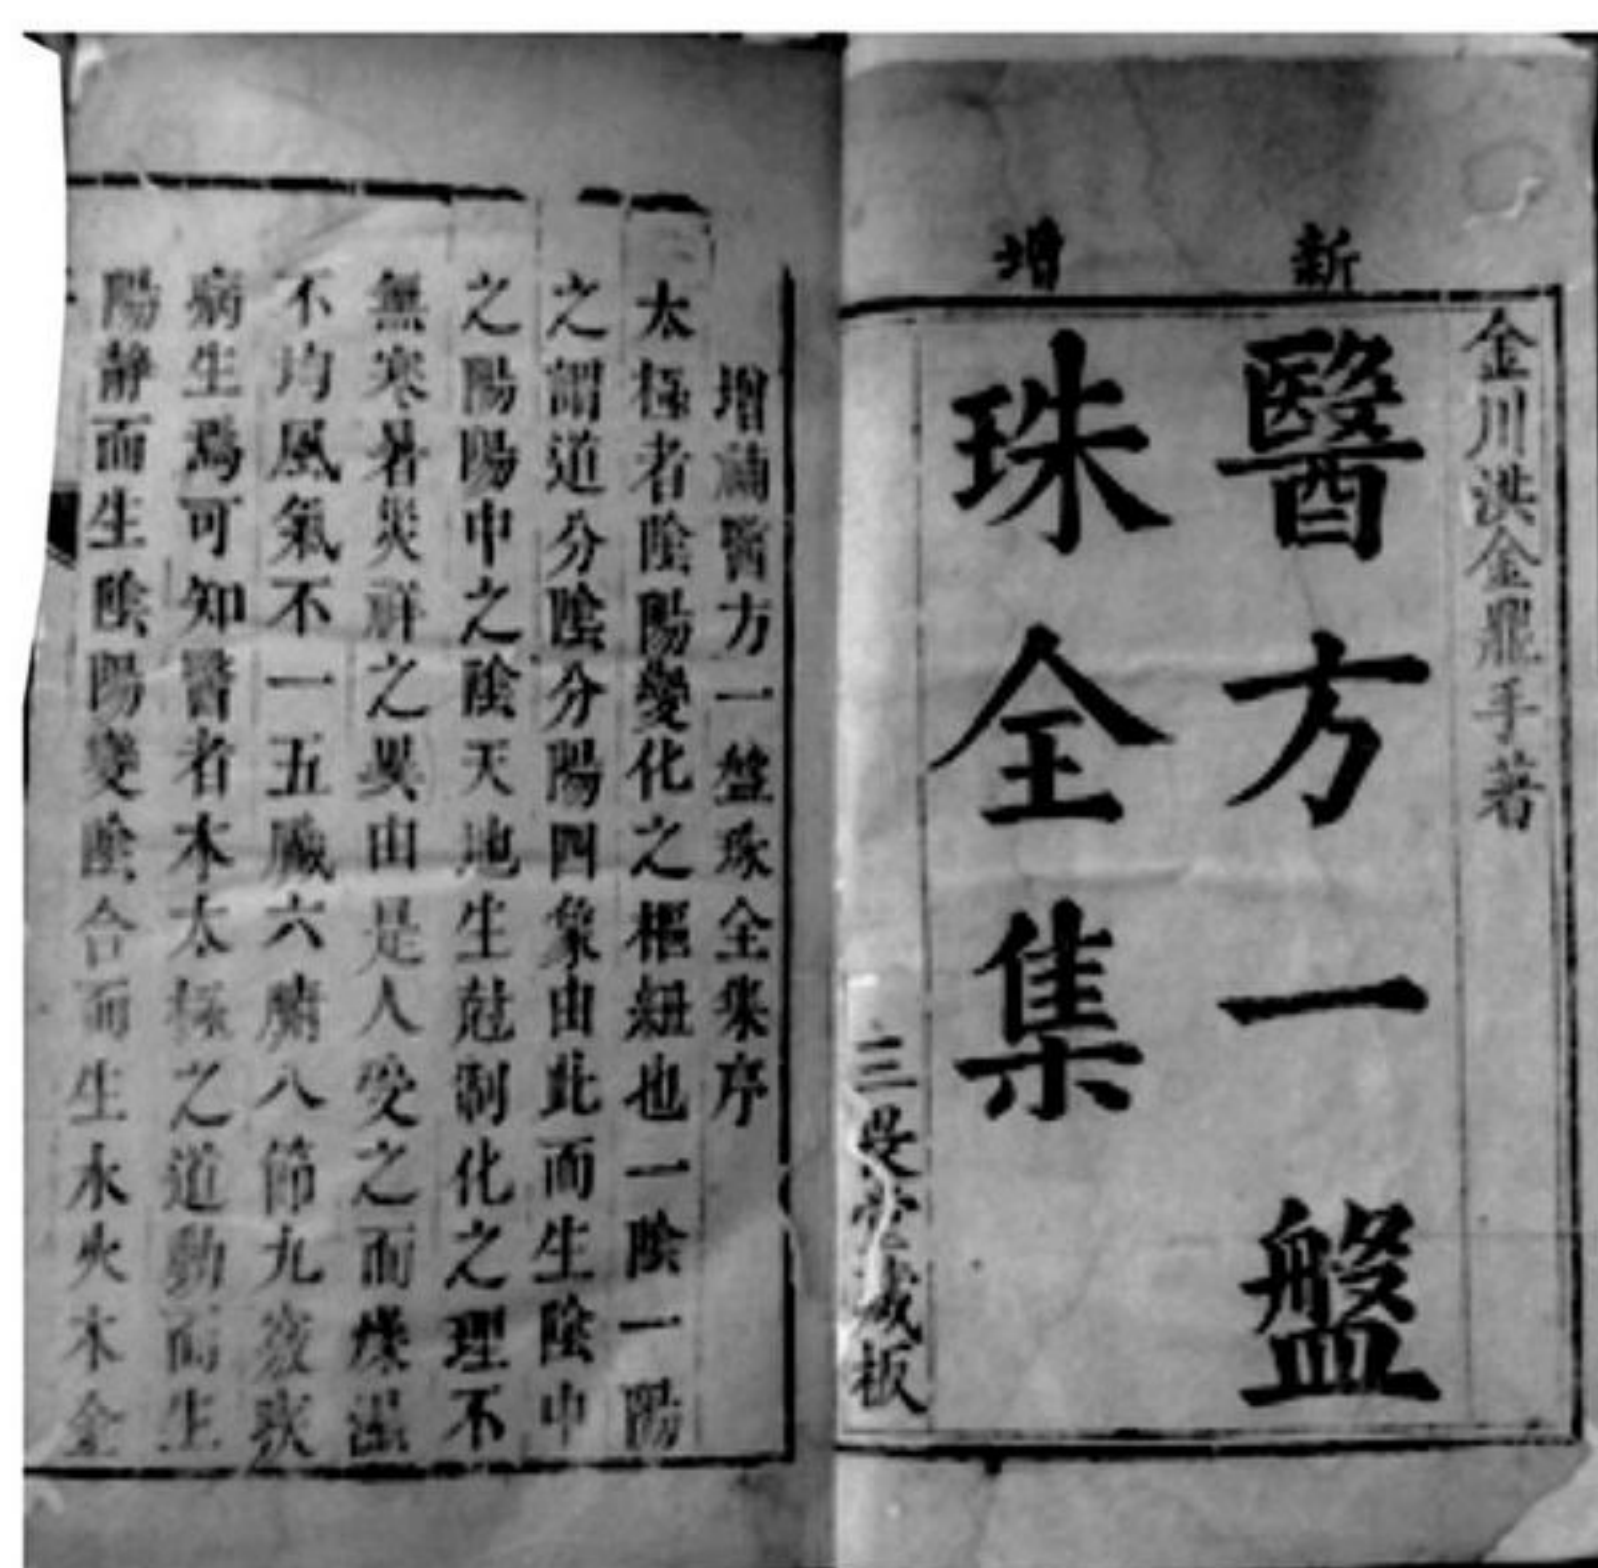 新增
金川洪金鼎手著
醫方一盤
珠全集
三 堂藏板
增補醫方一盤珠全集序
太極者陰陽變化之樞紐也一陰一陽
之謂道分陰分陽四象由此而生陰中
之陽陽中之陰天地生尅制化之理不
無寒暑災祥之異由是人受之而燥濕
不均風氣不一五臟六腑八節九竅
病生焉可知醫者本太極之道動而生
陽靜而生陰陽變陰合而生水火木金